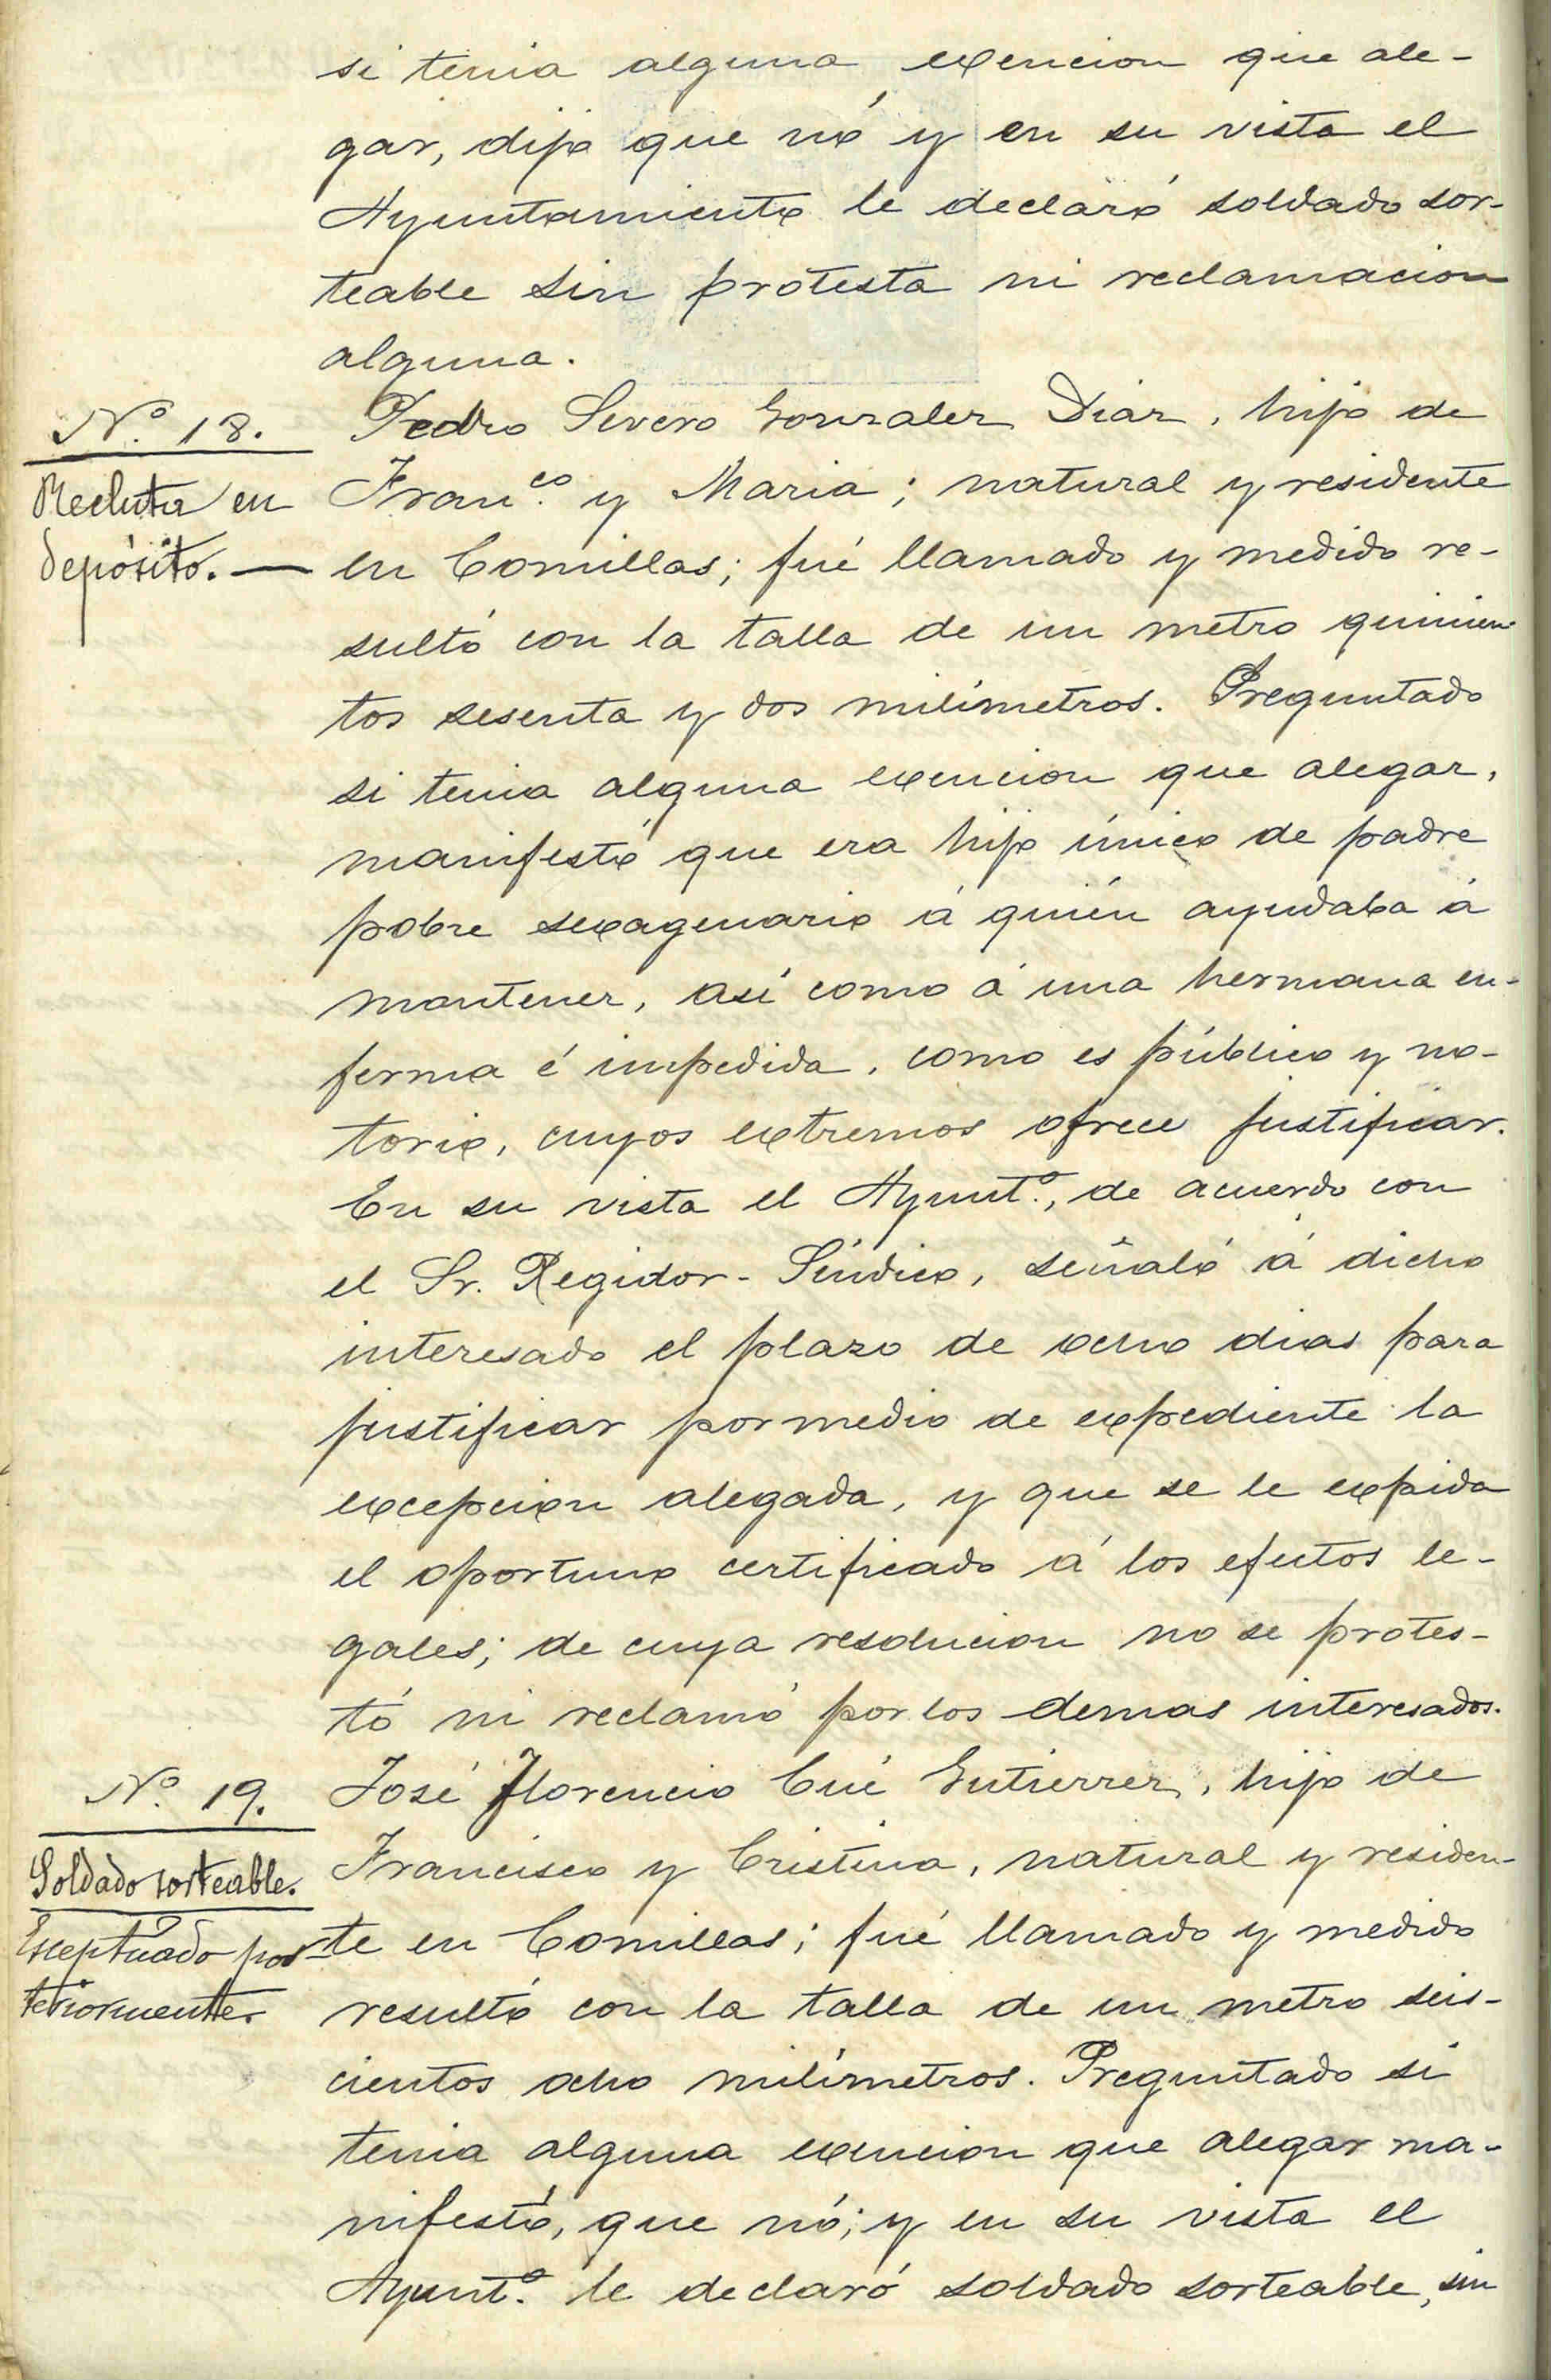 si tenia alguna exencion que ale-
gar, dijo que nó y en su vista el
Ayuntamiento le declaró soldado sor-
teable sin protesta ni reclamacion
alguna.
Nº 18.
Recluta en
depósito.—
Pedro Severo Gonzalez Diaz, hijo de
Fran.co y Maria; natural y residente
en Comillas; fué llamado y medido re-
sultó con la talla de un metro quinien-
tos sesenta y dos milímetros. Preguntado
si tenia alguna exencion que alegar,
manifestó que era hijo único de padre
pobre sexagenario á quién ayudaba á
mantener, así como á una hermana en-
ferma é impedida, como es público y no-
torio, cuyos extremos ofrece justificar.
En su vista el Ayunt.º, de acuerdo con
el Sr. Regidor-Síndico, señaló á dicho
interesado el plazo de ocho dias para
justificar por medio de expediente la
excepcion alegada, y que se le expida
el oportuno certificado á los efectos le-
gales; de cuya resolucion no se protes-
tó ni reclamó por los demas interesados.
Nº 19.
Soldado sorteable.
Esceptuado pos
teriormente.
José Florencio Cué Gutierrez, hijo de
Francisco y Cristina, natural y residen-
te en Comillas; fué llamado y medido
resultó con la talla de un metro seis-
cientos ocho milímetros. Preguntado si
tenia alguna exencion que alegar ma-
nifestó, que nó; y en su vista el
Ayunt.º le declaró soldado sorteable, sin